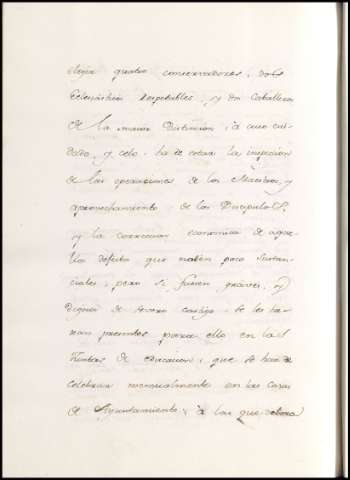 elegir quatro conservadores, dos
Eclesiasticos respetables, y dos Caballeros
de la maior Distincion, a cuio cui-
dado, y celo ha de estar la inspeccion
de las operaciones de los Maestros, y
aprovechamiento de los Discipulos,
y la correccion economica de aque-
llos defectos que no sean poco sustan-
ciales; pero si fuesen graves, y
dignos de severo castigo se les ha-
ran presentes para ello en las
Juntas de educacion, que se han de
celebrar mensualmente en las Casas
de Ayuntamiento; a las que debera